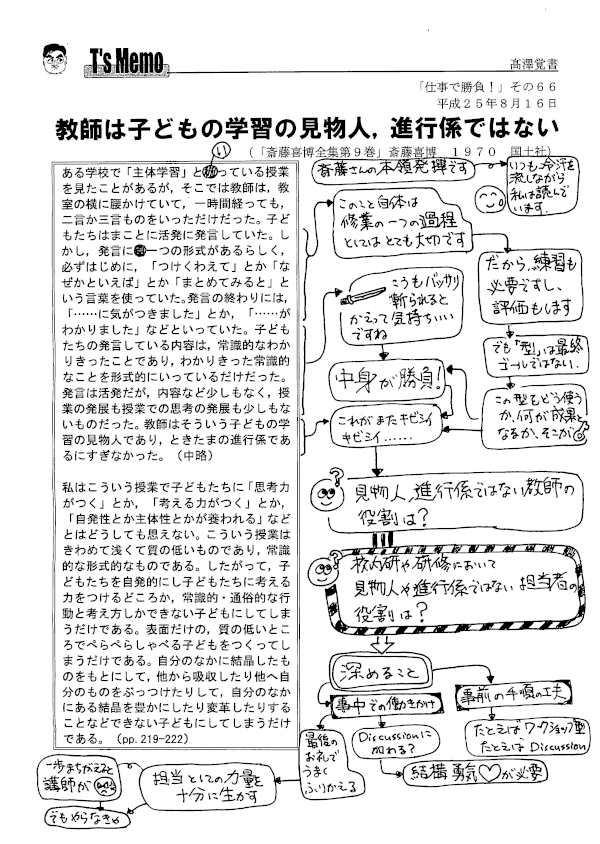 T's Memo
髙澤覚書
「仕事で勝負！」その６６
平成２５年８月１６日
教師は子どもの学習の見物人，進行係ではない
（「斎藤喜博全集第９巻」斎藤喜博　１９７０　国土社）
い
ある学校で「主体学習」と言っている授業
を見たことがあるが，そこでは教師は，教
室の横に腰かけていて，一時間経っても，
二言か三言ものをいっただけだった。子ど
もたちはまことに活発に発言していた。し
かし，発言に一つの形式があるらしく，
必ずはじめに，「つけくわえて」とか「な
ぜかといえば」とか「まとめてみると」と
いう言葉を使っていた。発言の終わりには，
「……に気がつきました」とか，「……が
わかりました」などといっていた。子ども
たちの発言している内容は，常識的なわか
りきったことであり，わかりきった常識的
なことを形式的にいっているだけだった。
発言は活発だが，内容など少しもなく，授
業の発展も授業での思考の発展も少しもな
いものだった。教師はそういう子どもの学
習の見物人であり，ときたまの進行係であ
るにすぎなかった。（中略）
私はこういう授業で子どもたちに「思考力
がつく」とか，「考える力がつく」とか，
「自発性とか主体性とかが養われる」など
とはどうしても思えない。こういう授業は
きわめて浅くて質の低いものであり，常識
的な形式的なものである。したがって，子
どもたちを自発的にし子どもたちに考える
力をつけるどころか，常識的・通俗的な行
動と考え方しかできない子どもにしてしま
うだけである。表面だけの，質の低いとこ
ろでぺらぺらしゃべる子どもをつくってし
まうだけである。自分のなかに結晶したも
のをもとにして，他から吸収したり他へ自
分のものをぶっつけたりして，自分のなか
にある結晶を豊かにしたり変革したりする
ことなどできない子どもにしてしまうだけ
である。（pp.219-222）
斎藤さんの本領発揮です
いつも冷汗を
流しながら
私は読んで
います．
このこと自体は
修業の一つの過程
としてはとても大切です
だから，練習も
必要ですし，
評価もします
こうもバッサリ
斬られると
かえって気持ちいい
ですね
でも「型」は最終
ゴールではない．
中身が勝負！
この型をどう使う
か，何が成果と
なるか，そこが
これがまたキビシイ
キビシイ……
見物人，進行係ではない教師の
役割は？
校内研や研修において
見物人や進行係ではない担当者の
役割は？
深めること
事中での働きかけ
事前の手順の工夫
たとえば ワークショップ型
たとえば Discussion
最後の
お礼で
うまく
ふりかえる
Discussionに
加わる？
結構勇気が必要
担当としての力量を
十分に生かす
一歩まちがえると
講師が
でもやらなきゃ